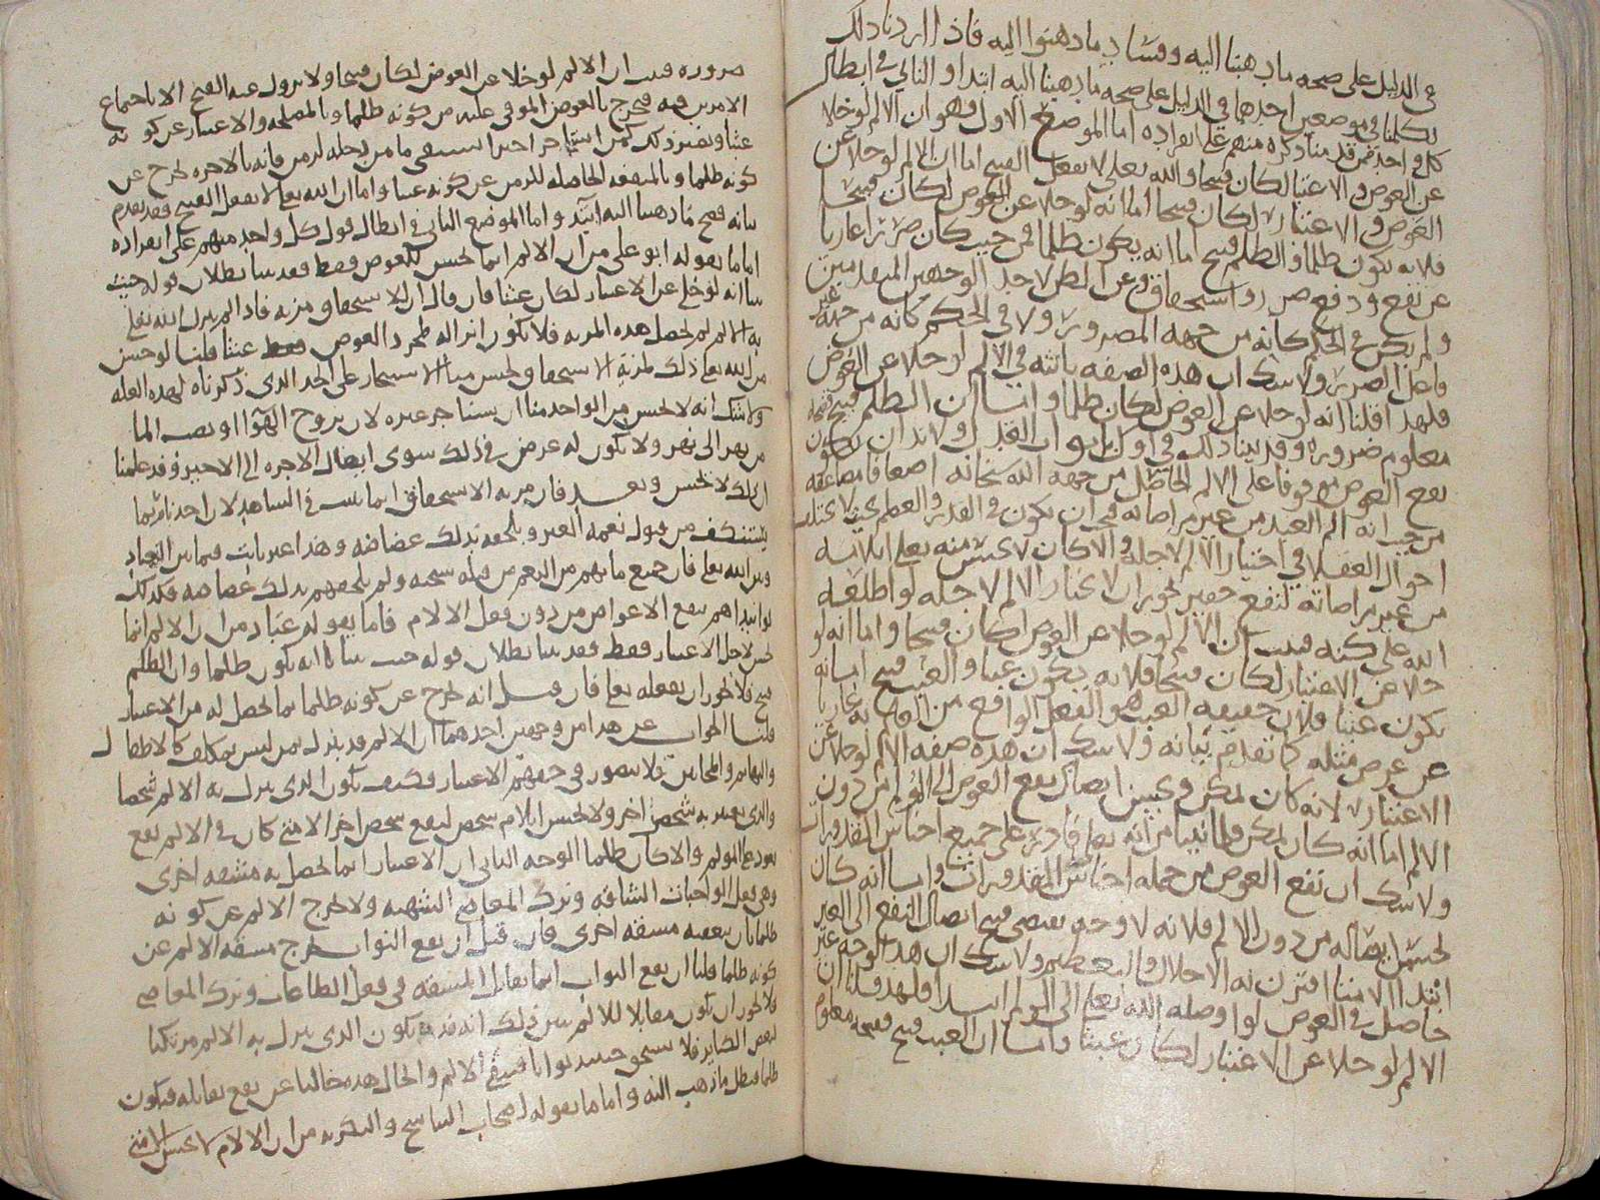 في الدليل على صحة ما ذهبنا اليه وفساد ما ذهبوا اليه فاذا اردنا ذلك
تكلمنا في موضعين احدهما في الدليل على صحة ما ذهبنا اليه ابتدا والثاني في ابطال
كل واحد ممن قدمنا ذكره منهم على انفراده اما الموضع الاول فهو ان الالم لو خلا
عن العوض والاعتبار لكان قبيحا والله تعالى لا يفعل القبيح اما ان الالم لو خلا عن
العوض والاعتبار لكان قبيحا اما انه لو خلا عن العوض لكان قبيحا
فلانه يكون ظلما والظلم قبيح اما انه يكون ظلما فمن حيث كان ضررا عاريا
عن نفع ودفع ضرر واستحقاق وعن الظن لاجل الوجهين المتقدمين
ولم يكن في الحكم كانه من جهة المضرور ولا في الحكم كانه من جهة غير
فاعل الضرر ولا شك ان هذه الصفة ثابتة في الالم لو خلا عن العوض
فلهذا قلنا انه لو خلا عن العوض لكان ظلما واما ان الظلم قبيح فقبحه
معلوم ضرورة وقد بينا ذلك في اول ابواب العدل ولا بد ان يكون
نفع العوض موفوفا على الالم الحاصل من جهة الله سبحانه اضعافا مضاعفة
من حيث انه الم العبد من غير مراضاته فيجب ان يكون في القدر والعظم بحيث لا يختلف
احوال العقلا في اختيار الالم لاجله والا كان لا يحسن منه تعالى ايلامه
من غير مراضاته لنفع حقير يجوز ان لا يختار الالم لاجله لو اطلعه
الله على كنهه فثبت ان الالم لو خلا عن العوض لكان قبيحا واما انه لو
خلا عن الاعتبار لكان قبيحا فلانه يكون عبثا والعبث قبيح اما انه
يكون عبثا فلان حقيقة العبث هو الفعل الواقع من العالم به عاريا
عن غرض مثله كما تقدم بيانه ولا شك ان هذه صفة الالم لو خلا عن
الاعتبار لانه كان يمكن ويحسن ايصال نفع العوض الى المؤلم من دون
الالم اما انه كان يمكن فلما بينا من انه تعالى قادر على جميع اجناس المقدورات
ولا شك ان نفع العوض من جملة اجناس المقدورات واما انه كان
يحسن ايصاله من دون الالم فلانه لا وجه يقتضي قبح ايصال النفع الى الغير
ابتدا الا متى اقترن به الاجلال والتعظيم ولا شك ان هذا الوجه غير
حاصل في العوض لو اوصله الله تعالى الى المولم ابتدا فلهذا قلنا ان
الالم لو خلا عن الاعتبار لكان عبثا واما ان العبث قبيح فقبحه معلوم
ضرورة فثبت ان الالم لو خلا عن العوض لكان قبيحا ولا يزول عنه القبح الا باجتماع
الامرين فيه فيخرج بالعوض الموفى عليه من كونه ظلما وبالمصلحة والاعتبار عن كونه
عبثا ونظير ذلك كمن استاجر اجيرا يستقي ما من دجلة لزمن فانه بالاجرة يخرج عن
كونه ظلما وبالمنفعة الحاصلة للزمن عن كونه عبثا واما ان الله تعالى لا يفعل القبيح فقد تقدم
بيانه فصح ما ذهبنا اليه ابتدا واما الموضع الثاني في ابطال قول كل واحد منهم على انفراده
اما ما يقوله ابو علي من ان الالم انما يحسن للعوض فقط فقد بينا بطلان قوله حيث
بينا انه لو خلي عن الاعتبار لكان عبثا فان قال ان للاستحقاق مزية فاذا لم ينزل الله تعالى
به الالم لم يحصل هذه المزية فلا يكون انزاله لمجرد العوض فقط عبثا قلنا لو حسن
من الله تعالى ذلك لمزية الاستحقاق لحسن منا الاستيجار على الحد الذي ذكرناه لهذه العلة
ولا شك انه لا يحسن من الواحد منا ان يستاجر غيره لان يروح الهوا او يصب الما
من نهر الى نهر ولا يكون له غرض في ذلك سوى ايصال الاجرة الى الاجير وقد علمنا
ان ذلك لا يحسن وبعد فان مزية الاستحقاق انما تثبت في الشاهد لان احدنا ربما
يستنكف من قبول نعمة الغير ويلحقه بذلك غضاضة وهذا غير ثابت فيما بين العباد
وبين الله تعالى فان جميع ما بهم من النعم من قبله سبحانه ولم يلحقهم بذلك غضاضة فكذلك
لو ابتداهم بنفع الاعواض من دون فعل الالام فاما ما يقوله عباد من ان الالم انما
يحسن لاجل الاعتبار فقط فقد بينا بطلان قوله حيث بينا انه يكون ظلما وان الظلم
قبيح فلا يجوز ان يفعله تعالى فان قيل انه يخرج عن كونه ظلما بما يحصل له من الاعتبار
قلنا الجواب عن هذا من وجهين احدهما ان الالم قد ينزل بمن ليس بمكلف كالاطفال
والبهائم والمجانين فلا يتصور في حقهم الاعتبار فكيف يكون الذي ينزل به الالم شخصا
والذي يعتبر به شخص اخر ولا يحسن ايلام شخص لنفع شخص اخر الا متى كان في الالم نفع
يعود على المولم والا كان ظلما الوجه الثاني ان الاعتبار انما يحصل به مشقة اخرى
وهي فعل الواجبات الشاقة وترك المعاصي الشهية ولا يخرج الالم عن كونه
ظلما بان يعقبه مشقة اخرى فان قيل ان نفع الثواب يخرج مشقة الالم عن
كونه ظلما قلنا ان نفع الثواب انما يقابل المشقة في فعل الطاعات وترك المعاصي
فلا يجوز ان يكون مقابلا للالم يبين ذلك انه قد يكون الذي ينزل به الالم مرتكبا
لبعض الكبائر فلا يستحق حينئذ ثوابا فيبقى الالم والحال هذه خاليا عن نفع يقابله فيكون
ظلما فبطل ما ذهب اليه واما ما يقوله اصحاب التناسخ والبكرية من ان الالام لا يحسن الا متى